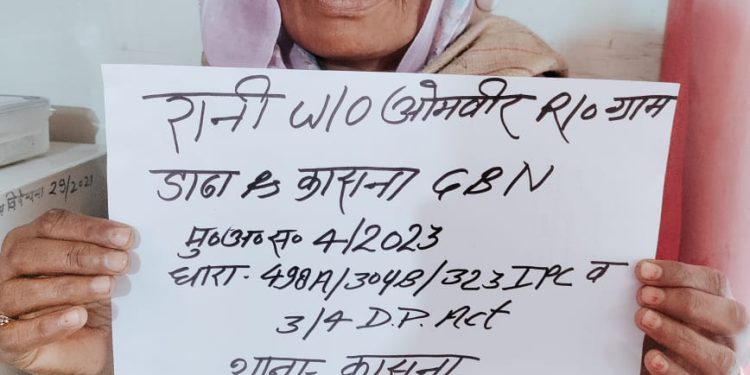 रानी W/O ओमवीर R/o ग्राम
डाढा PS कासना GBN
मु०अ०स० 4/2023
धारा- 498A/304B/323 IPC व
3/4 D.P. Act
थाना- कासना
विवेचना 29/2021